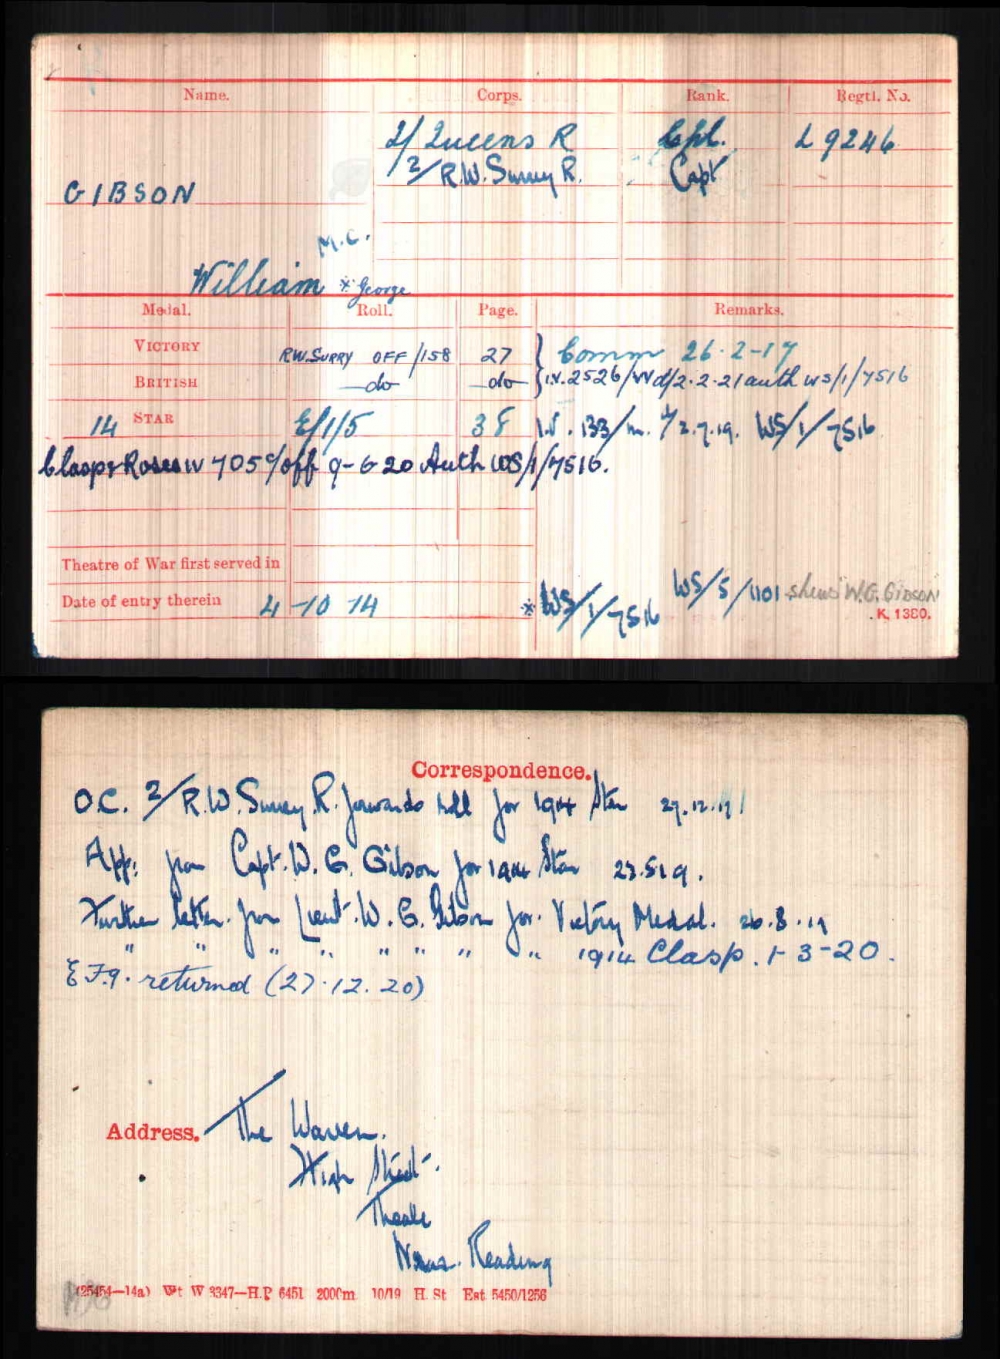 Name. Corps. Rank. Regtl. No.
2/ Queens R Cpl. L 9246
2/ R.W. Surrey R. Capt
GIBSON
M.C.
William * George
Medal. Roll. Page. Remarks.
VICTORY R.W. SURRY OFF/158 27 Comm 26-2-17
BRITISH —do— —do— IV.2526/W d/2-2-21 auth WS/1/7516
14 STAR E/1/5 38 IV. 133/m. d/2.7.19. WS/1/7516
Clasp & Roses IV 705 /off 9-6 20 Auth WS/1/7516.
Theatre of War first served in
Date of entry therein 4-10 14 * WS/1/7516 WS/5/1101 shews W.G. GIBSON
K. 1380.
Correspondence.
O.C. 2/R.W. Surrey R. forwards roll for 1914 Star
App: from Capt. W. G. Gibson for 1914 Star 23.5.19.
Further letter from Lieut. W. G. Gibson for Victory Medal. 26.8.19
" " " " " " " " 1914 Clasp. 1-3-20.
E F.9. returned (27.12.20)
Address. The Warren.
High Street.
Theale
Near Reading
(25454—14a) Wt W 3347—H.P 6451 2000m 10/19 H. St Est 5450/1256